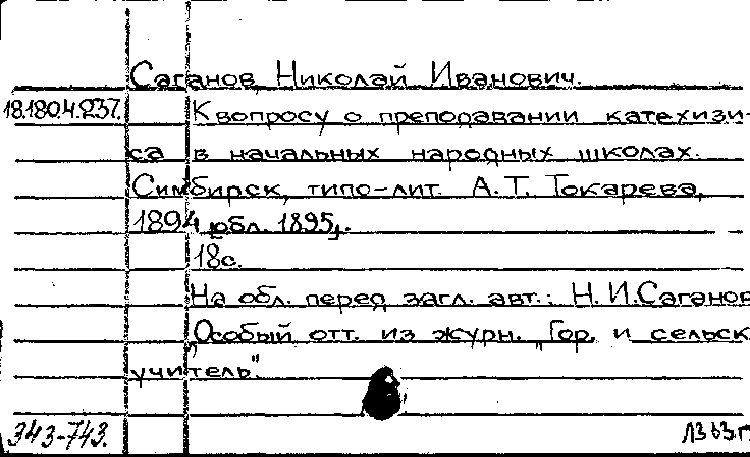 Саганов, Николай Иванович.
18.180.4.237. К вопросу о преподавании катехизи-
са в начальных народных школах.
Симбирск, типо-лит. А.Т. Токарева,
1894 [обл. 1895].
18с.
На обл. перед загл. авт.: Н.И.Саганов
"Особый отт. из журн. "Гор. и сельск
учитель".
343-743.